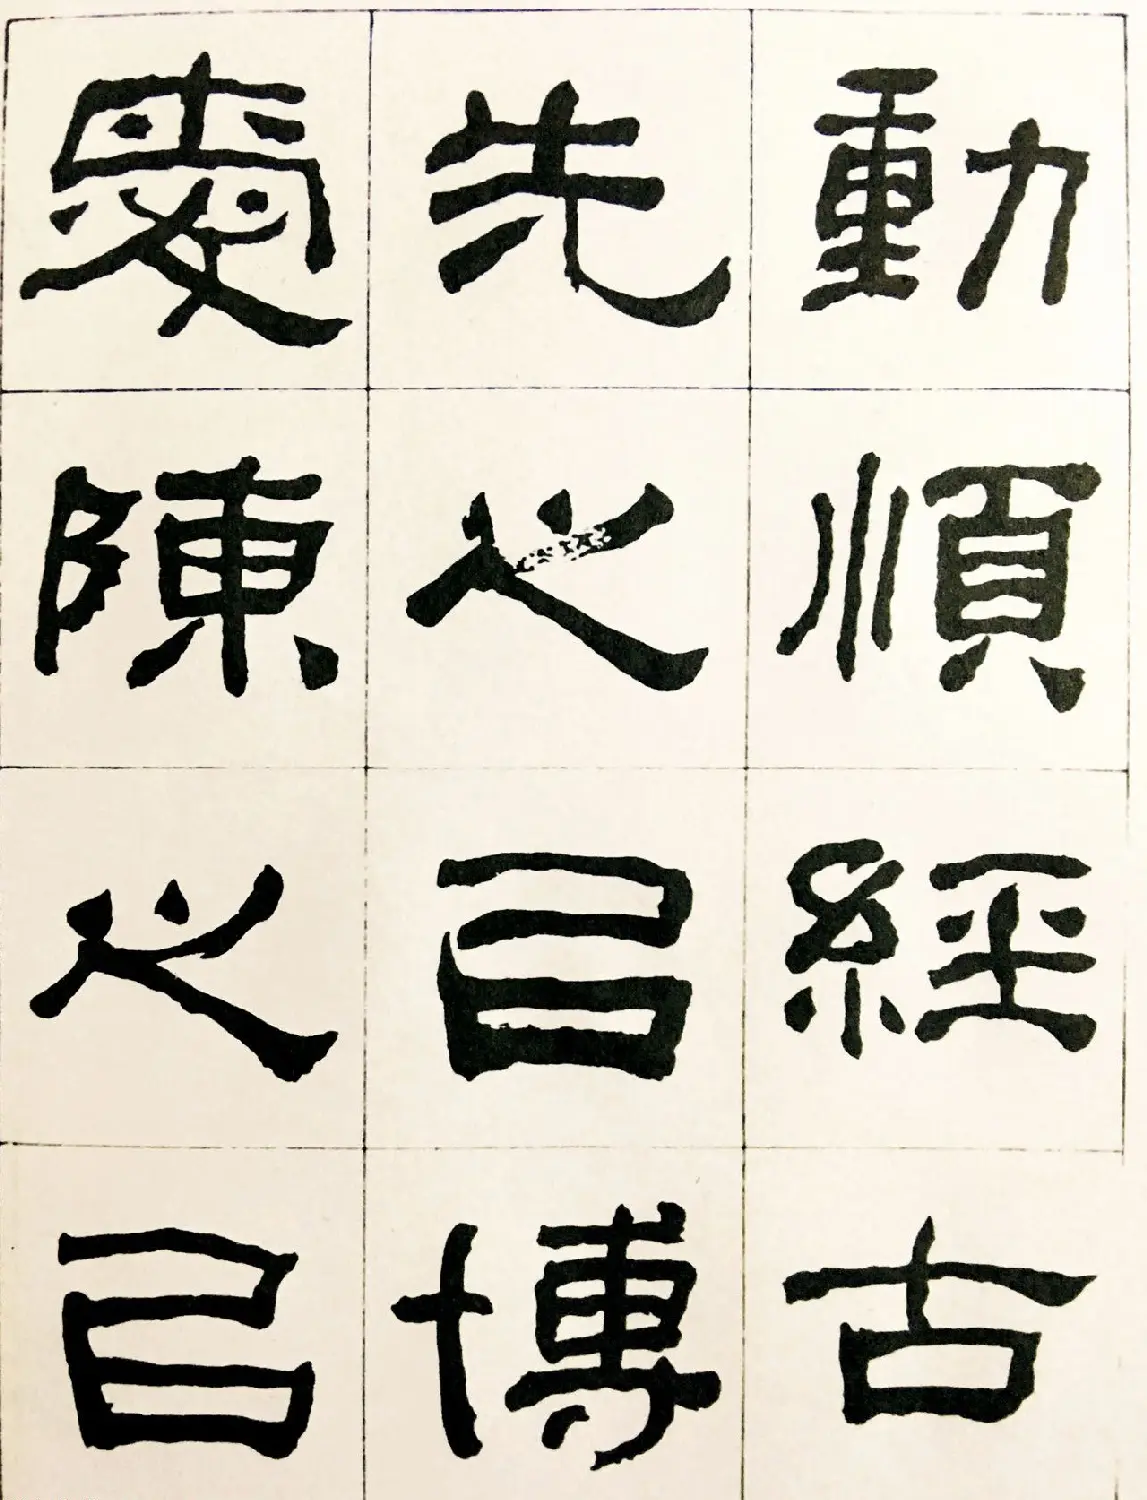 動順經古
先之㠯博
愛陳之㠯